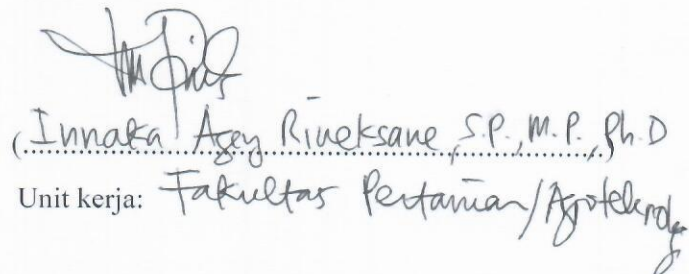 (Innaka Ageng Rineksane, S.P., M.P., Ph.D)
Unit kerja: Fakultas Pertanian/Agroteknologi